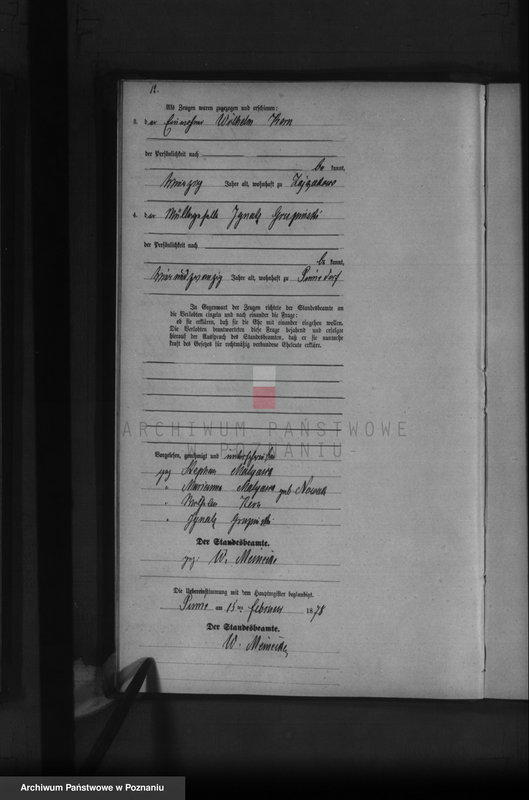 12.
Als Zeugen waren zugezogen und erschienen:
3. der Einwohner Wilhelm Kern
der Persönlichkeit nach
be kannt,
vierzig Jahre alt, wohnhaft zu
4. der Müllergeselle Ignatz Grupinski
der Persönlichkeit nach
be kannt,
vierundzwanzig Jahre alt, wohnhaft zu Pinne Dorf
In Gegenwart der Zeugen richtete der Standesbeamte an
die Verlobten einzeln und nach einander die Frage:
ob sie erklären, daß sie die Ehe mit einander eingehen wollen.
Die Verlobten beantworteten diese Frage bejahend und erfolgte
hierauf der Ausspruch des Standesbeamten, daß er sie nunmehr
kraft des Gesetzes für rechtmäßig verbundene Eheleute erkläre.
ARCHIWUM PAŃSTWOWE
W POZNANIU
Vorgelesen, genehmigt und unterschrieben
gez Stephan
" Marianna geb Nowak
" Wilhelm Kern
" Ignatz Grupinski
Der Standesbeamte.
gez. W. Meinicke
Die Uebereinstimmung mit dem Hauptregister beglaubigt.
Pinne am 15ten Februar 1878
Der Standesbeamte.
W. Meinicke
Archiwum Państwowe w Poznaniu